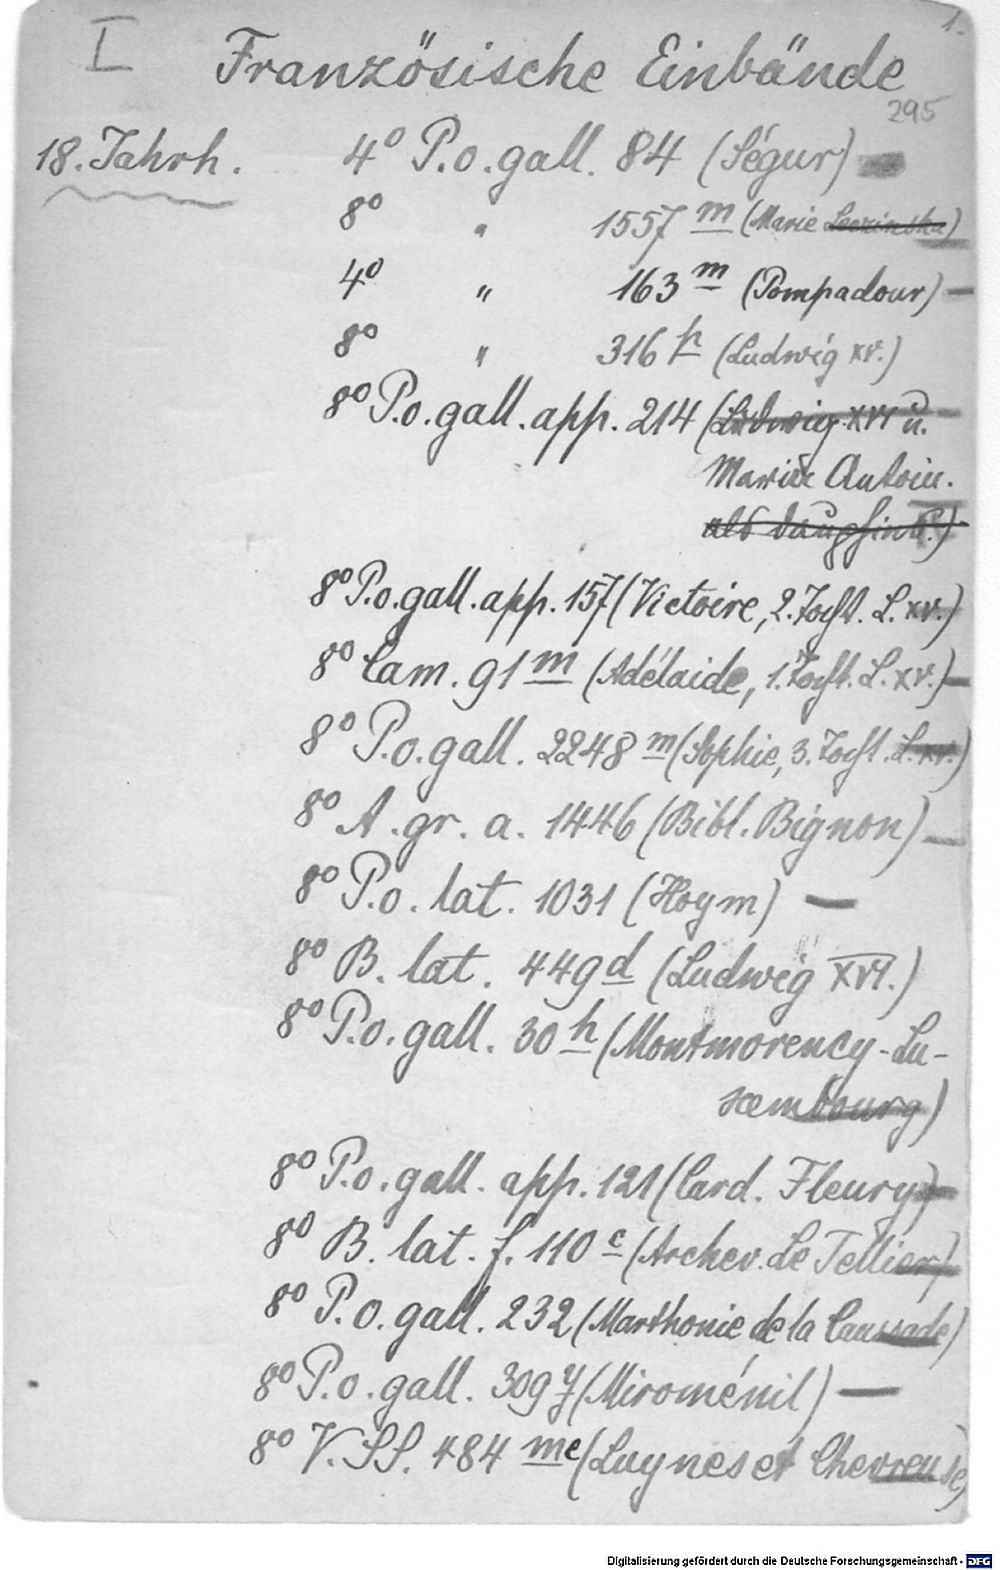 I 1.
Französische Einbände
295
18. Jahrh. 4° P.o.gall. 84 (Ségur)
8° " 1557 m (Marie Leczinska)
4° " 163 m (Pompadour)
8° " 316 h (Ludwig XV.)
8° P.o.gall.app. 214 (Ludwig XVI u.
Marie Antoin.
als Dauphine.)
8° P.o.gall.app. 157 (Victoire, 2. Tocht. L. XV.)
8° Cam. 91 m (Adélaide, 1. Tocht. L. XV.)
8° P.o.gall. 2248 m (Sophie, 3. Tocht. L. XV.)
8° A.gr.a. 1446 (Bibl. Bignon)
8° P.o.lat. 1031 (Hoym)
8° B. lat. 449 d (Ludwig XVI.)
8° P.o.gall. 30 h (Montmorency-Lu-
xembourg)
8° P.o.gall.app. 121 (Card. Fleury)
8° B. lat. f. 110 c (Archev. Le Tellier)
8° P.o.gall. 232 (Marthonie de la Caussade)
8° P.o.gall. 309 y (Miroménil)
8° V.SS. 484 me (Luynes et Chevreuse)
Digitalisierung gefördert durch die Deutsche Forschungsgemeinschaft - DFG